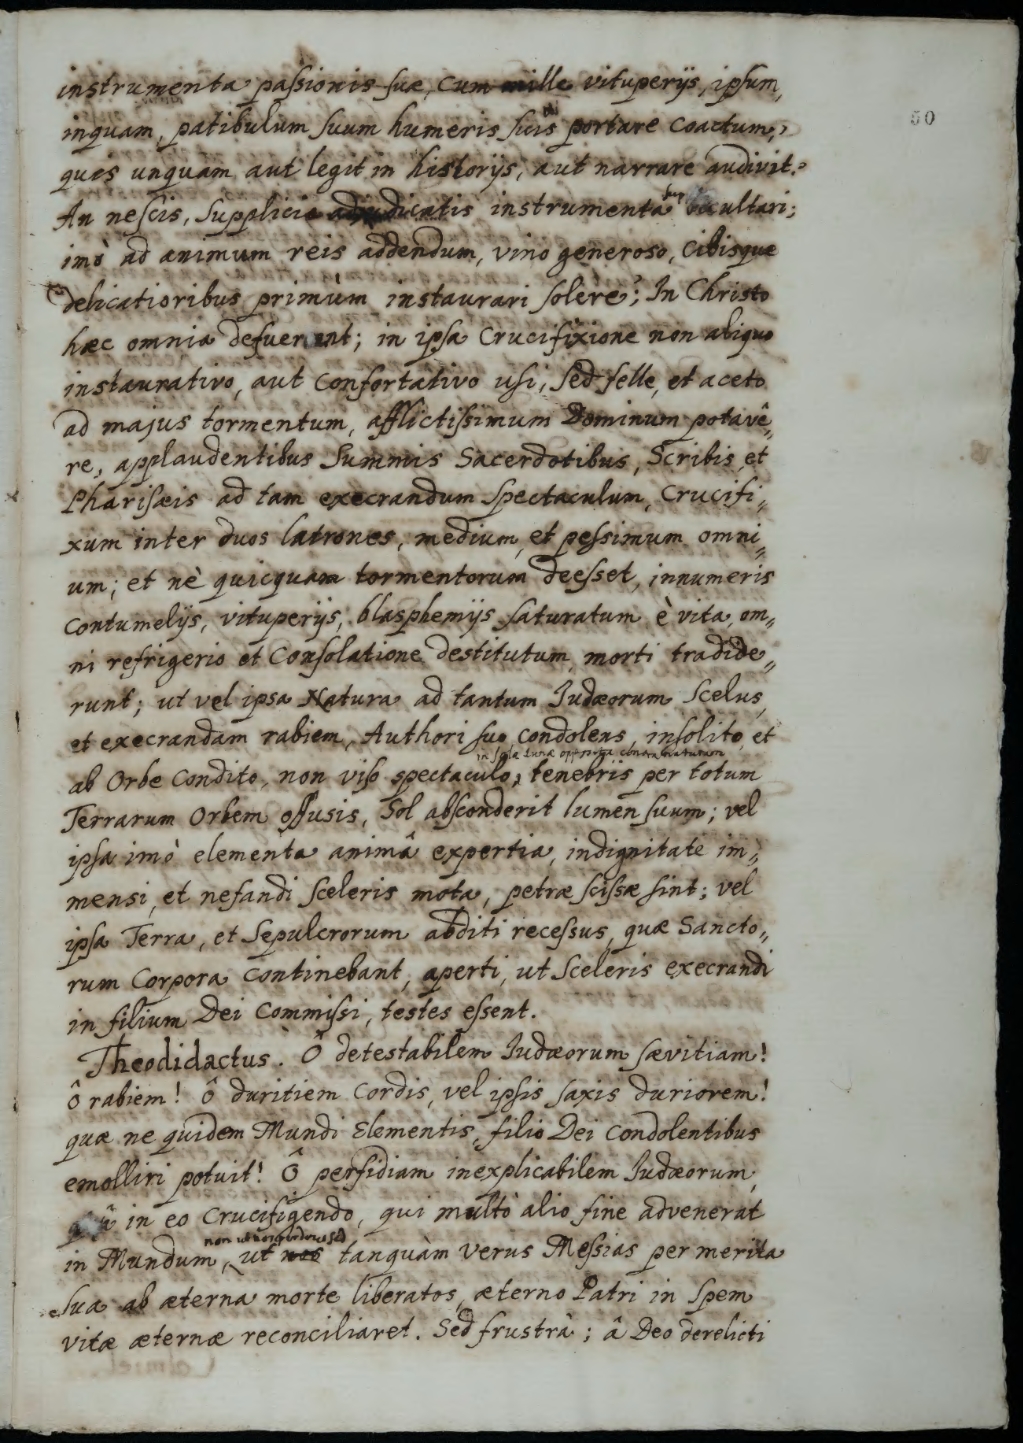 instrumenta passionis suæ, cum mille vituperijs, ipsum,
60
inquam, patibulum suum humeris suis portare coactum,
quis unquam aut legit in historijs, aut narrare audivit?
An nescis, supplicia instrumenta occultari;
imò ad animum reis addendum, vino generoso, cibisque
delicatioribus primùm instaurari solere? In Christo
hæc omnia defuerunt; in ipsa Crucifixione non aliquo
instaurativo, aut confortativo usi, sed felle, et aceto
ad majus tormentum, afflictissimum Dominum potavê,,
re, applaudentibus Summis Sacerdotibus, Scribis, et
Pharisæis ad tam execrandum spectaculum, Crucifi,,
xum inter duos latrones, medium, et pessimum omni,,
um; et nè quicquam tormentorum deesset, innumeris
contumelijs, vituperijs, blasphemijs saturatum è vita, om,,
ni refrigerio et Consolatione destitutum, morti tradide,,
runt; ut vel ipsa Natura ad tantum Judæorum Scelus,
et execrandam rabiem, Authori suo condolens, insolito, et
Lunæ contra naturam
ab Orbe Condito, non viso spectaculo, tenebris per totum
Terrarum Orbem offusis, Sol absconderit lumen suum; vel
ipsa imò elementa animâ expertia, indignitate im,,
mensi, et nefandi Sceleris mota, petræ scissæ sint; vel
ipsa Terra, et Sepulcrorum abditi recessus, quæ Sancto,,
rum Corpora continebant, aperti, ut Sceleris execrandi
in filium Dei Commissi, testes essent.
Theodidactus. Ô detestabilem Judæorum sævitiam!
ô rabiem! ô duritiem Cordis, vel ipsis saxis duriorem!
quæ ne quidem Mundi Elementis, filio Dei Condolentibus
emolliri potuit! Ô perfidiam inexplicabilem Judæorum,
in eo Crucifigendo, qui multò alio fine advenerat
non ut
in Mundum, ut nos tanquàm Verus Messias per merita
sua ab æterna morte liberatos, æterno Patri in Spem
vitæ æternæ reconciliaret. Sed frustrà; â Deo derelicti